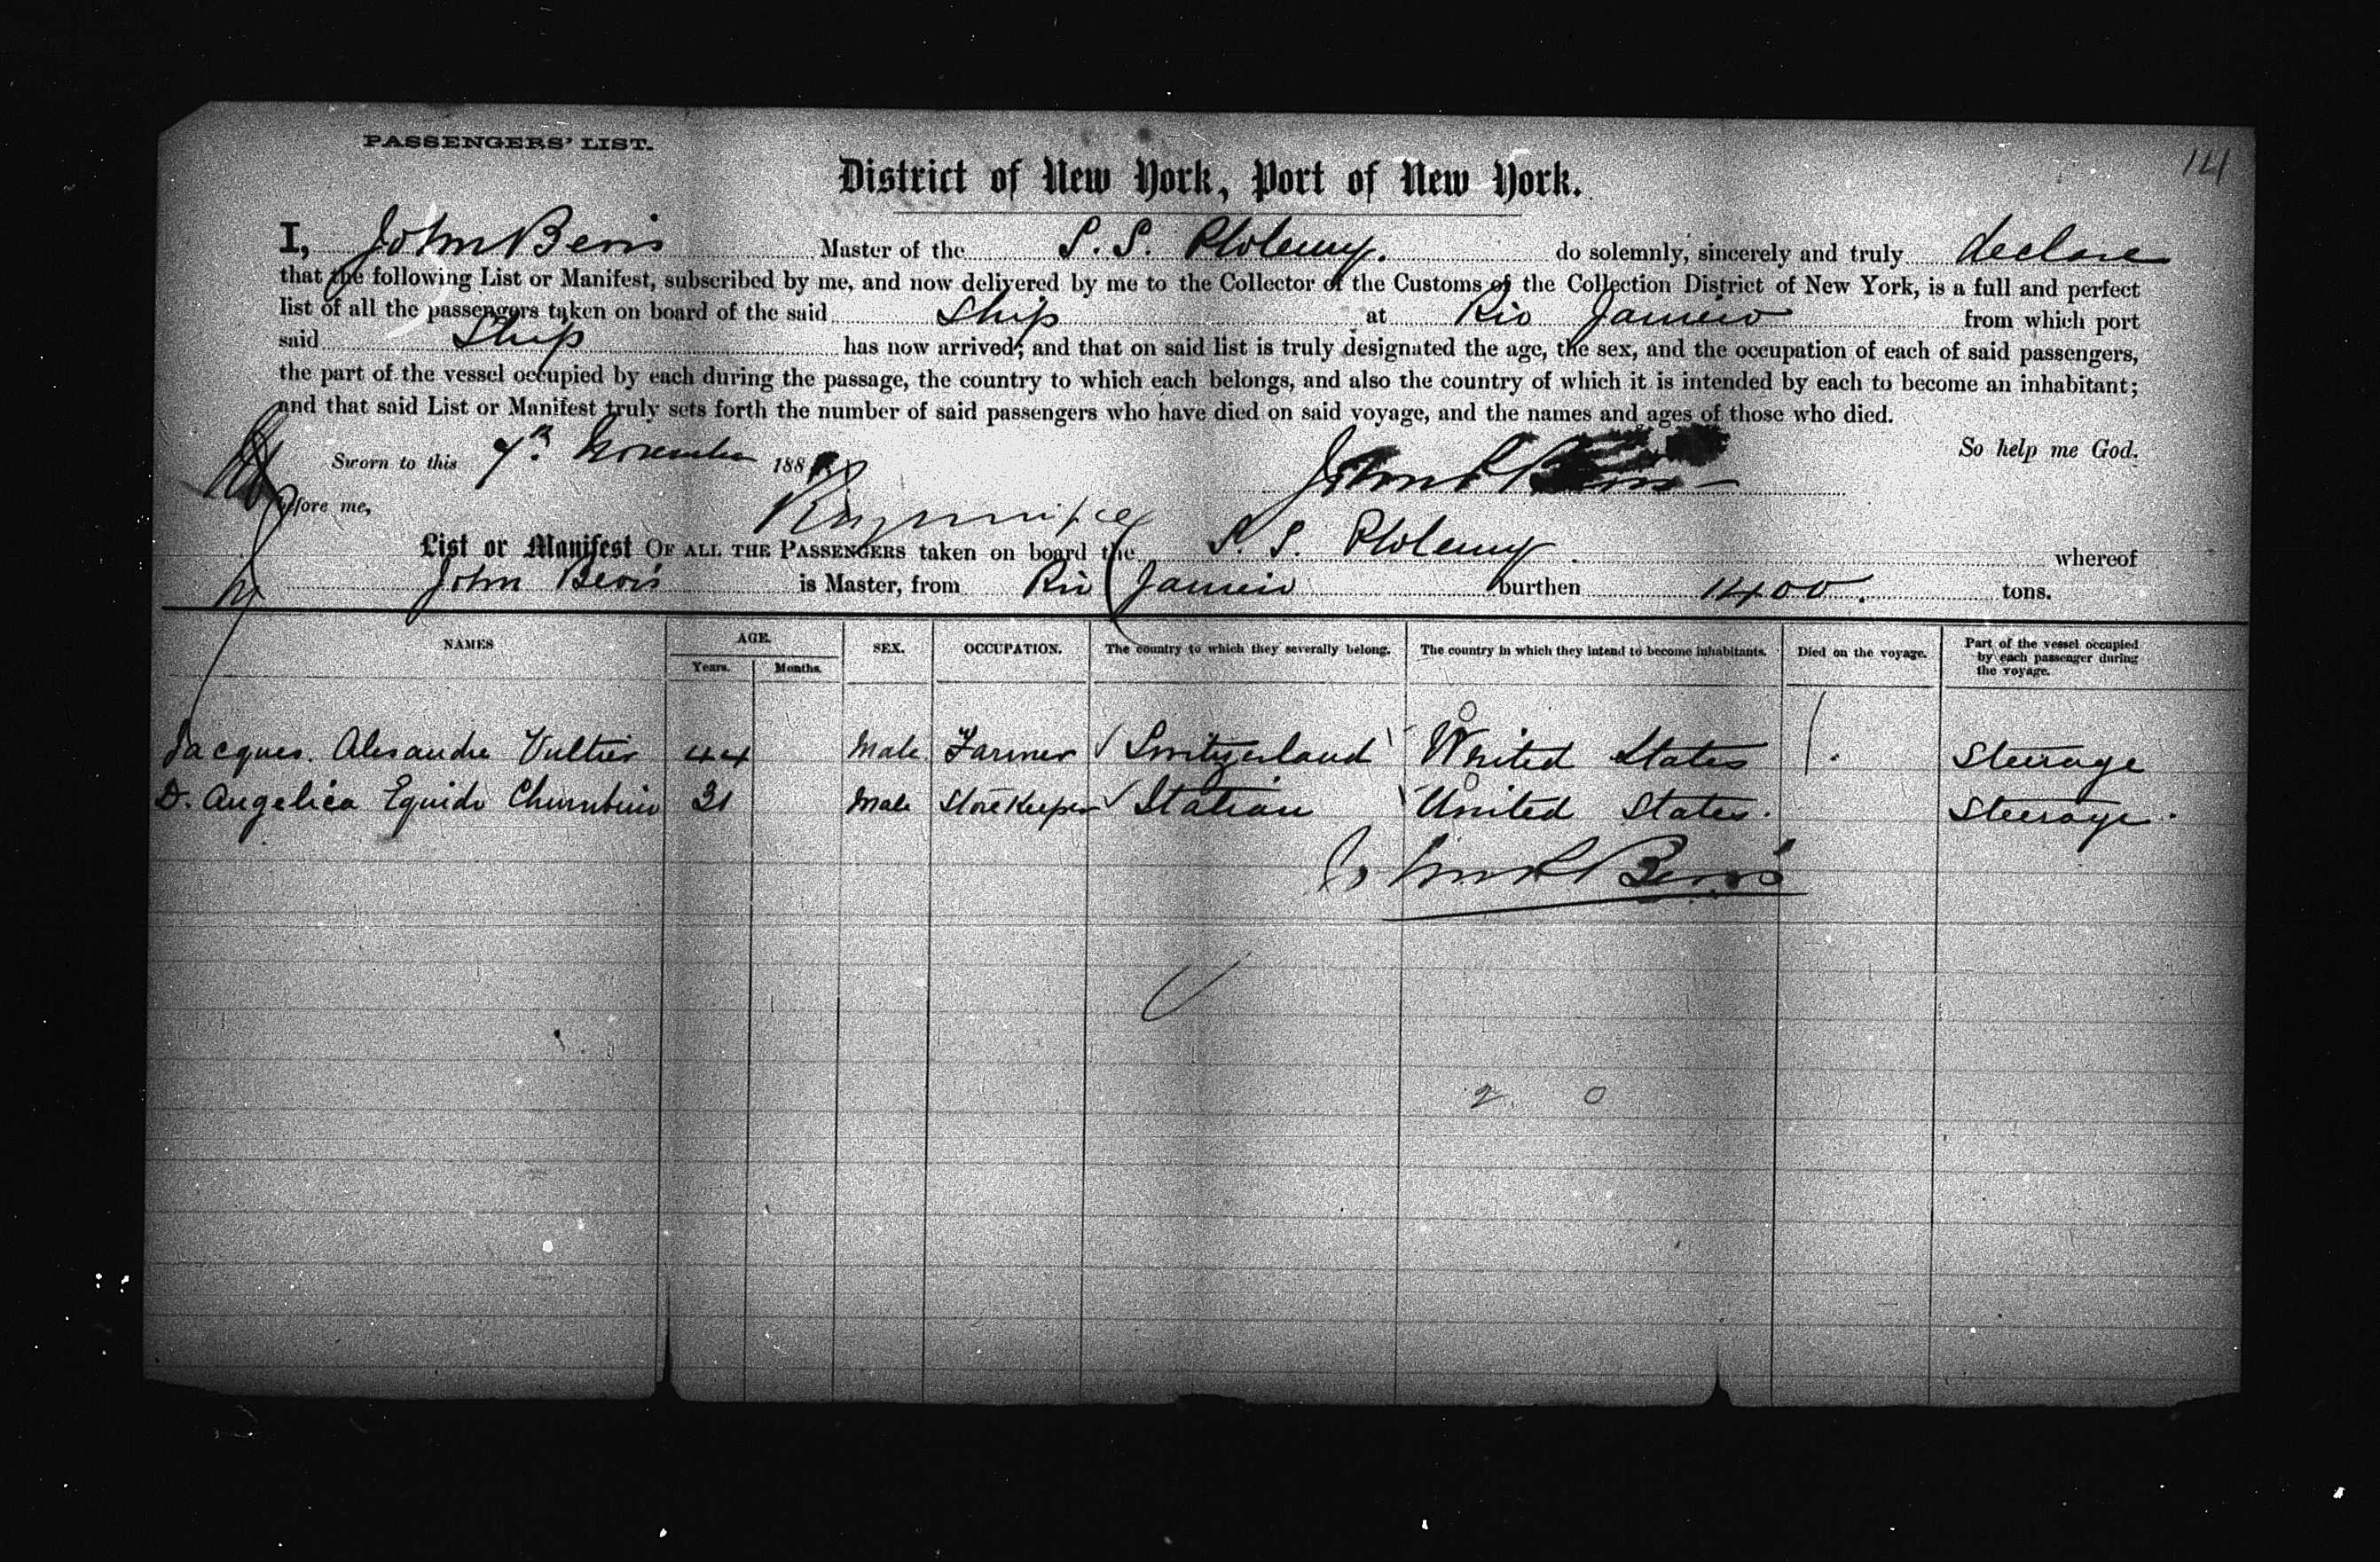 141
PASSENGERS' LIST.
District of New York, Port of New York.
I, John Bevis Master of the S. S. Ptolemy. do solemnly, sincerely and truly declare
that the following List or Manifest, subscribed by me, and now delivered by me to the Collector of the Customs of the Collection District of New York, is a full and perfect
list of all the passengers taken on board of the said Ship at Rio Janeiro from which port
said Ship has now arrived; and that on said list is truly designated the age, the sex, and the occupation of each of said passengers,
the part of the vessel occupied by each during the passage, the country to which each belongs, and also the country of which it is intended by each to become an inhabitant;
and that said List or Manifest truly sets forth the number of said passengers who have died on said voyage, and the names and ages of those who died.
So help me God.
Sworn to this 7th November 188
before me,
List or Manifest OF ALL THE PASSENGERS taken on board the S. S. Ptolemy whereof
John Bevis is Master, from Rio Janeiro burthen 1400. tons.
NAMES AGE. Years. Months. SEX. OCCUPATION. The country to which they severally belong. The country in which they intend to become inhabitants. Died on the voyage. Part of the vessel occupied by each passenger during the voyage.
Jacques. Alesandre Vultier 44 Male Farmer Switzerland United States Steerage
D. Angelica Equido 31 Male Storekeeper Italian United States. Steerage.
John Bevis
2 0